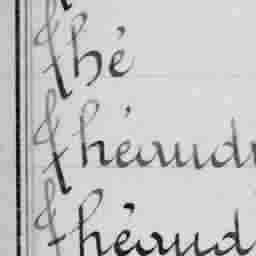 Thé
Théaud
Théaud